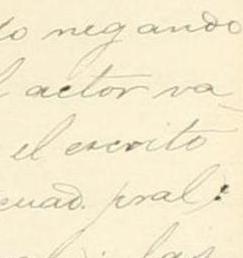 lo negando
l actor va-
el escrito
cuad. pral:
las